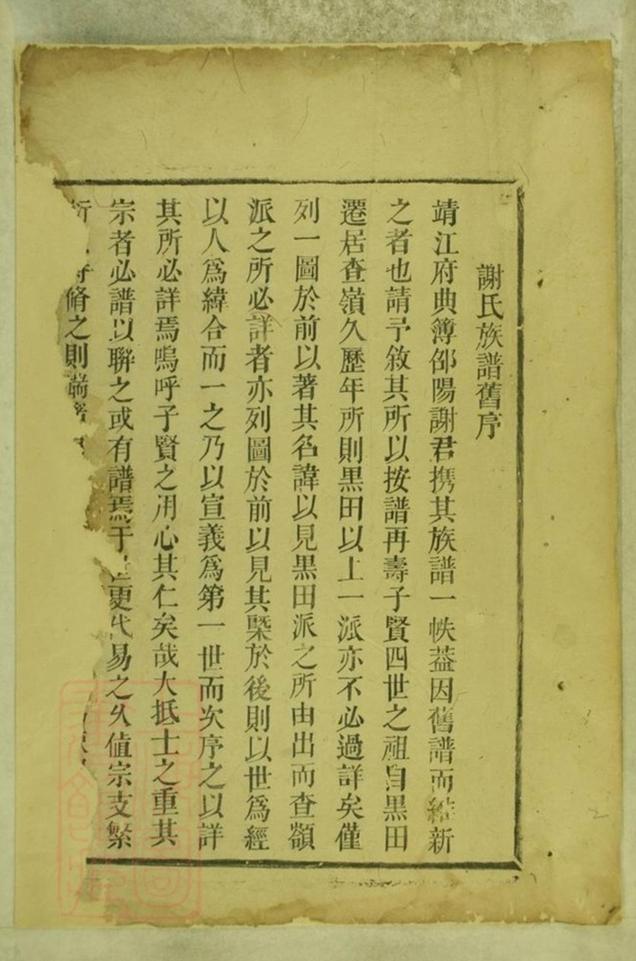 謝氏族譜舊序
靖江府典簿邵陽謝君携其族譜一帙葢因舊譜而緝新
之者也請予敘其所以按譜再壽子賢四世之祖自黒田
遷居查嶺久歷年所則黒田以上一派亦不必過詳矣僅
列一圖於前以著其名諱以見黒田派之所由出而查嶺
派之所必詳者亦列圖於前以見其槩於後則以世爲經
以人爲緯合而一之乃以宣義爲第一世而次序之以詳
其所必詳焉嗚呼子賢之用心其仁矣哉大抵士之重其
宗者必譜以聯之或有譜焉于更代易之久值宗支繁
脩之則